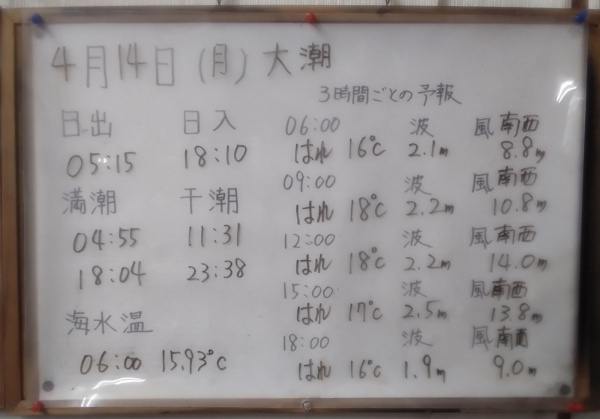 4月14日(月) 大潮
3時間ごとの予報
日出 日入
05:15 18:10
満潮 干潮
04:55 11:31
18:04 23:38
海水温
06:00 15.93℃
06:00 波 風 南西
はれ 16℃ 2.1m 8.8m
09:00 波 風 南西
はれ 18℃ 2.2m 10.8m
12:00 波 風 南西
はれ 18℃ 2.2m 14.0m
15:00 波 風 南西
はれ 17℃ 2.5m 13.8m
18:00 波 風 南西
はれ 16℃ 1.9m 9.0m